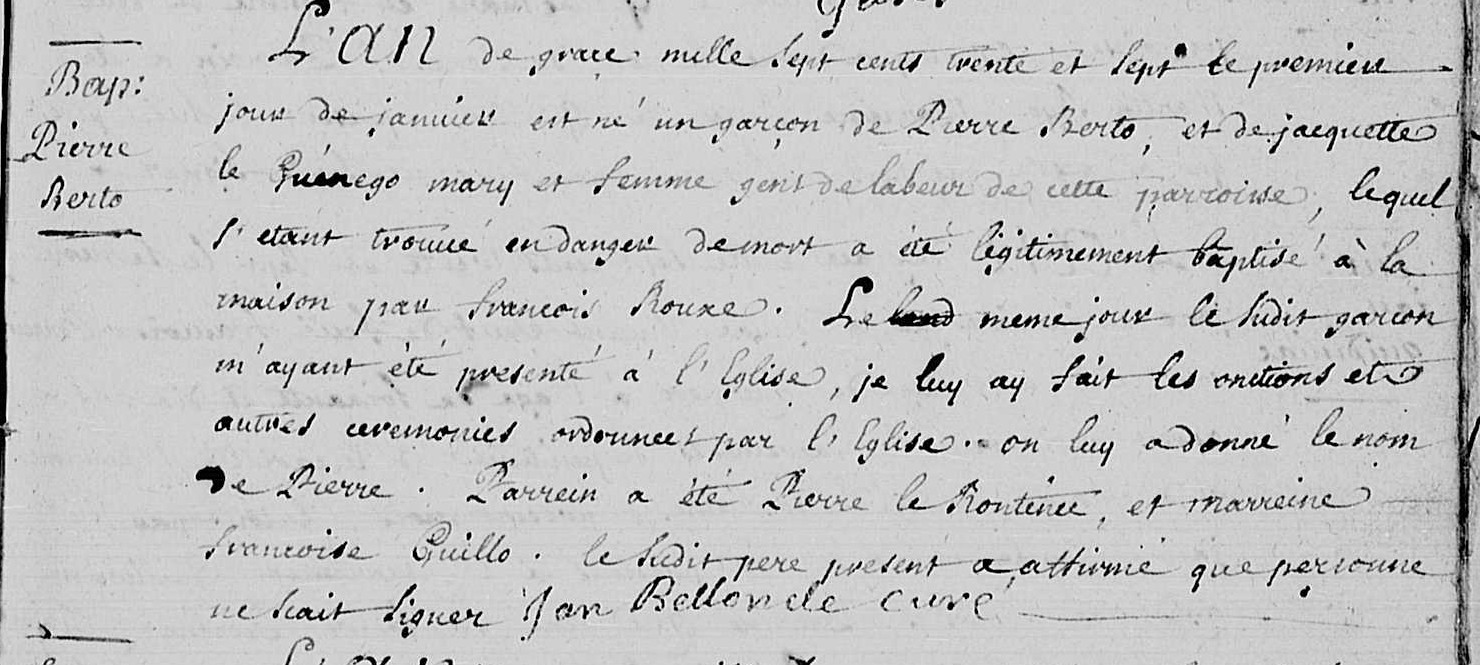 Bap:
Pierre
Berto
L'an de grace mille sept cents trente et sept le premier
jour de janvier est né un garçon de Pierre Berto, et de jacquette
le Guénego mary et femme gent de labeur de cette parroisse, lequel
s'etant trouvé en danger de mort a été légitimement baptisé à la
maison par francois Rouxe. Le meme jour le sudit garcon
m'ayant été présenté à l'Eglise, je luy ay fait les onctions et
autres ceremonies ordonnees par l'Eglise. on luy a donné le nom
de Pierre. Parrein a été Pierre le , et marreine
francoise Guillo. le sudit pere present a affirmé que personne
ne scait signer Jan Bellondele curé